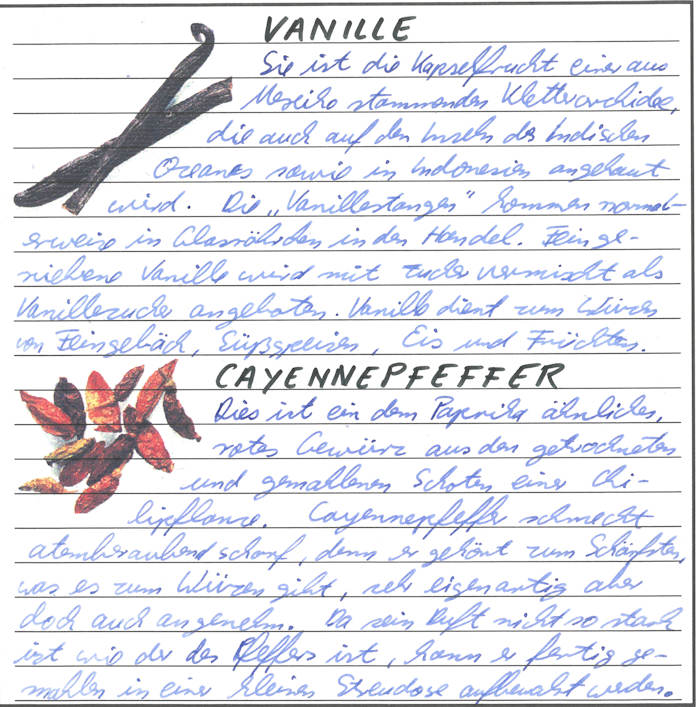 VANILLE
Sie ist die Kapselfrucht einer aus
Mexiko stammenden Kletterorchidee,
die auch auf den Inseln des Indischen
Ozeanes sowie in Indonesien angebaut
wird. Die „Vanillestangen“ kommen normal-
erweise in Glasröhrchen in den Handel. Feinge-
riebene Vanille wird mit Zucker vermischt als
Vanillezucker angeboten. Vanille dient zum Würzen
von Feingebäck, Süßspeisen, Eis und Früchten.
CAYENNEPFEFFER
Dies ist ein dem Paprika ähnliches,
rotes Gewürz aus den getrockneten
und gemahlenen Schoten einer Chi-
lipflanze. Cayennepfeffer schmeckt
atemberaubend scharf, denn er gehört zum Schärfsten,
was es zum Würzen gibt, sehr eigenartig aber
doch auch angenehm. Da sein Duft nicht so stark
ist wie der des Pfeffers ist, kann er fertig ge-
mahlen in einer kleinen Streudose aufbewahrt werden.